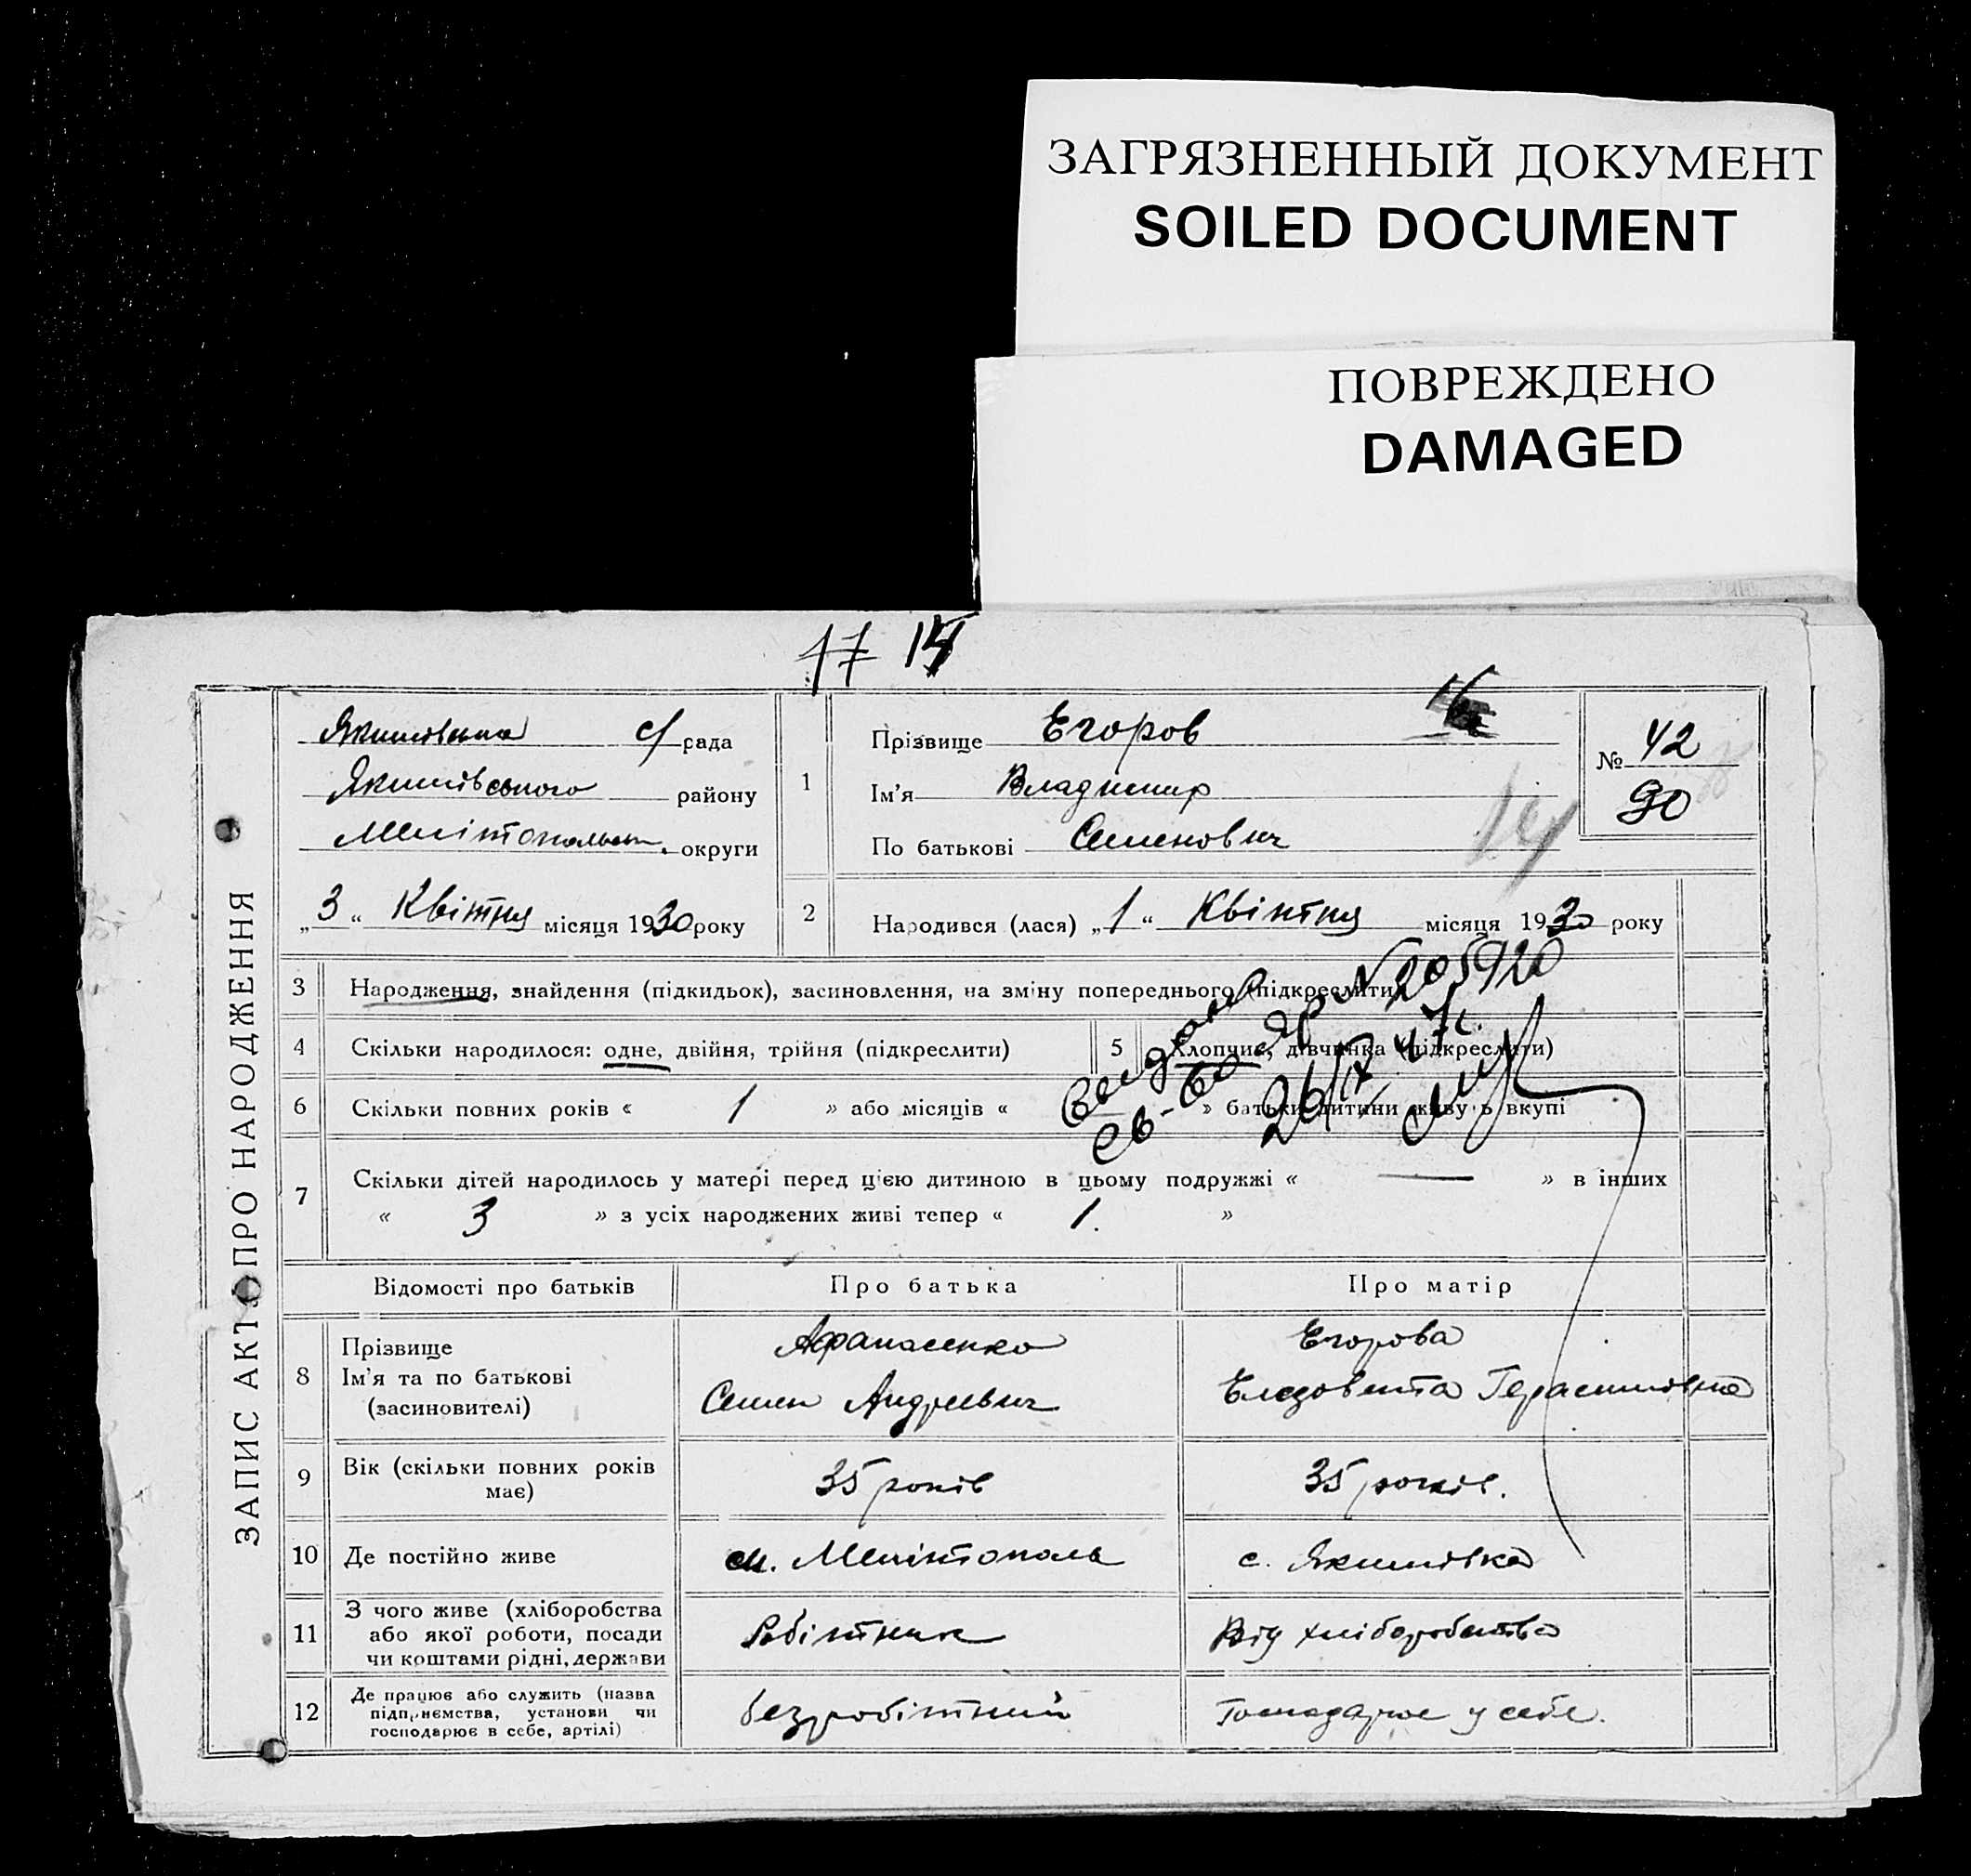 ЗАГРЯЗНЕННЫЙ ДОКУМЕНТ
SOILED DOCUMENT
ПОВРЕЖДЕНО
DAMAGED
17 15
ЗАПИС АКТА ПРО НАРОДЖЕННЯ
Якимівська с/рада
Якимівського району
Мелітопольськ. округи
„3“ Квітня місяця 1930 року
1
Прізвище Егоров
Ім'я Владимир
По батькові Семенович
14
№ 42
90
2
Народився (лася) „1“ Квітня місяця 1930 року
3 Народження, знайдення (підкидьок), засиновлення, на зміну попереднього (підкреслити)
4 Скільки народилося: одне, двійня, трійня (підкреслити)
5 Хлопчик, дівчинка (підкреслити)
6 Скільки повних років « 1 » або місяців « » батьки дитини живуть вкупі
№ 205920
26/IX 47г.
7 Скільки дітей народилось у матері перед цією дитиною в цьому подружжі « — » в інших
« 3 » з усіх народжених живі тепер « 1. »
Відомості про батьків Про батька Про матір
8 Прізвище
Ім'я та по батькові
(засиновителі)
Афанасенко
Семен Андреевич
Егорова
Елезовета Герасимовна
9 Вік (скільки повних років має)
35 років
35 років.
10 Де постійно живе
м. Мелітополь
с. Якимівка
11 З чого живе (хліборобства
або якої роботи, посади
чи коштами рідні, держави
Робітник
Від хліборобства
12 Де працює або служить (назва
підприємства, установи чи
господарює в себе, артілі)
безробітний
Господарює у себе.